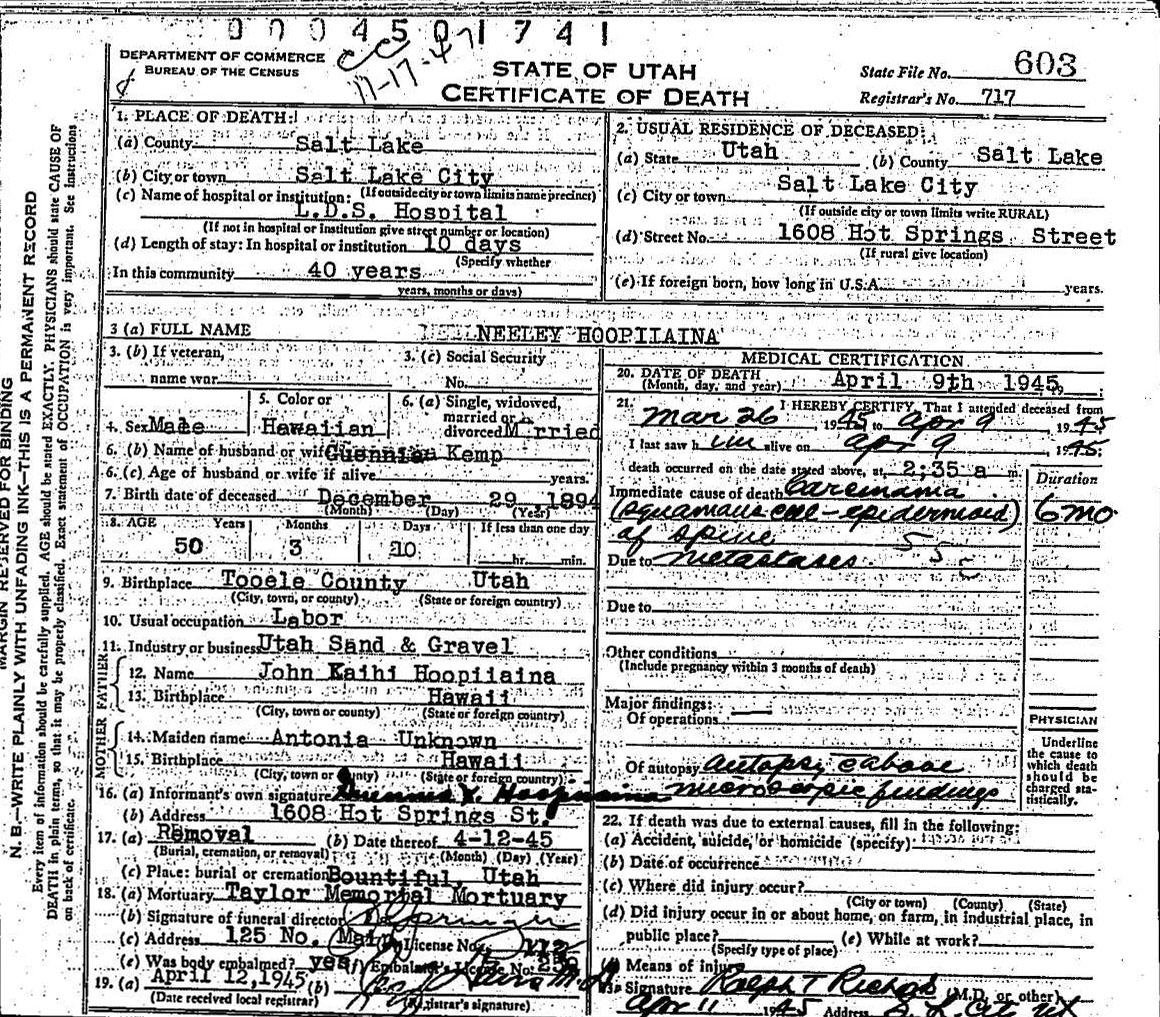 0004501741
DEPARTMENT OF COMMERCE
BUREAU OF THE CENSUS
CC
11-17-47
STATE OF UTAH
CERTIFICATE OF DEATH
State File No. 603
Registrar's No. 717
MARGIN RESERVED FOR BINDING
N. B.—WRITE PLAINLY WITH UNFADING INK—THIS IS A PERMANENT RECORD
Every item of information should be carefully supplied. AGE should be stated EXACTLY. PHYSICIANS should state CAUSE OF
DEATH in plain terms, so that it may be properly classified. Exact statement of OCCUPATION is very important. See instructions
on back of certificate.
1. PLACE OF DEATH:
(a) County Salt Lake
(b) City or town Salt Lake City
(If outside city or town limits name precinct)
(c) Name of hospital or institution:
L.D.S. Hospital
(If not in hospital or institution give street number or location)
(d) Length of stay: In hospital or institution 10 days
(Specify whether
In this community 40 years
years, months or days)
2. USUAL RESIDENCE OF DECEASED:
(a) State Utah (b) County Salt Lake
(c) City or town Salt Lake City
(If outside city or town limits write RURAL)
(d) Street No. 1608 Hot Springs Street
(If rural give location)
(e) If foreign born, how long in U.S.A. years.
3 (a) FULL NAME NEELEY HOOPIIAINA
3. (b) If veteran,
name war
3. (c) Social Security
No.
4. Sex Male
5. Color or
Hawaiian
6. (a) Single, widowed,
married or
divorced Married
6. (b) Name of husband or wife Kemp
6. (c) Age of husband or wife if alive years.
7. Birth date of deceased December 29 1894
(Month) (Day) (Year)
8. AGE Years Months Days If less than one day
50 3 10 hr. min.
9. Birthplace Tooele County Utah
(City, town, or county) (State or foreign country)
10. Usual occupation Labor
11. Industry or business Utah Sand & Gravel
FATHER
12. Name John Kaihi Hoopiiaina
13. Birthplace Hawaii
(City, town or county) (State or foreign country)
MOTHER
14. Maiden name Antonia Unknown
15. Birthplace Hawaii
(City, town or county) (State or foreign country)
16. (a) Informant's own signature
(b) Address 1608 Hot Springs St.
17. (a) Removal (b) Date thereof 4-12-45
(Burial, cremation, or removal) (Month) (Day) (Year)
(c) Place: burial or cremation Bountiful, Utah
18. (a) Mortuary Taylor Memorial Mortuary
(b) Signature of funeral director
(c) Address 125 No. Main License No. 112
(e) Was body embalmed? yes (f) Embalmer's License No.
19. (a) April 12, 1945 (b)
(Date received local registrar) (Registrar's signature)
MEDICAL CERTIFICATION
20. DATE OF DEATH
(Month, day, and year) April 9th 1945
21. I HEREBY CERTIFY, That I attended deceased from
Mar 26 1945 to Apr 9 1945
I last saw him alive on Apr 9 1945;
death occurred on the date stated above, at 2:35 a m.
Duration
Immediate cause of death Carcinoma
(squamous cell - epidermoid) 6 mo
of spine
Due to metastases
55
Due to
Other conditions
(Include pregnancy within 3 months of death)
Major findings:
Of operations
Of autopsy autopsy
microscopic findings
PHYSICIAN
Underline
the cause to
which death
should be
charged sta-
tistically.
22. If death was due to external causes, fill in the following:
(a) Accident, suicide, or homicide (specify)
(b) Date of occurrence
(c) Where did injury occur?
(City or town) (County) (State)
(d) Did injury occur in or about home, on farm, in industrial place, in
public place? (e) While at work?
(Specify type of place)
(f) Means of injury
23. Signature Ralph T Richards (M.D. or other)
Apr 11 1945 Address S. L. City Ut